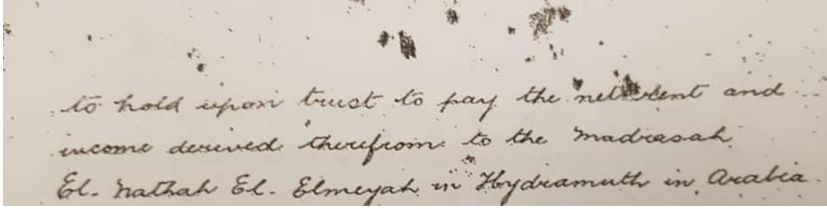 to hold upon trust to pay the net rent and
income derived therefrom to the Madrasah
El. Nathah El. Elmeyah in Hydramuth in Arabia.